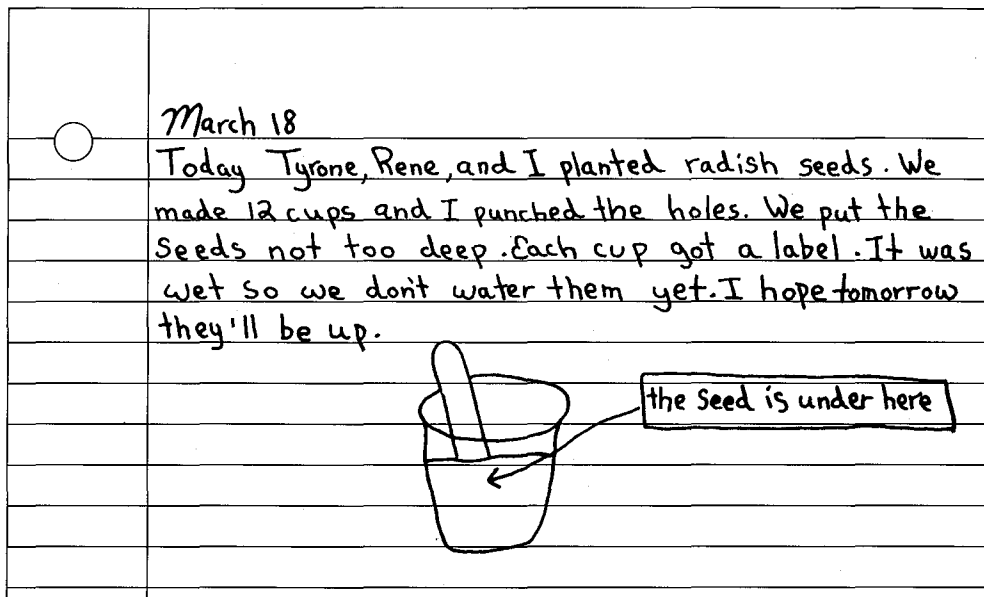 March 18
Today Tyrone, Rene, and I planted radish seeds. We
made 12 cups and I punched the holes. We put the
seeds not too deep. Each cup got a label. It was
wet so we don't water them yet. I hope tomorrow
they'll be up.
the seed is under here